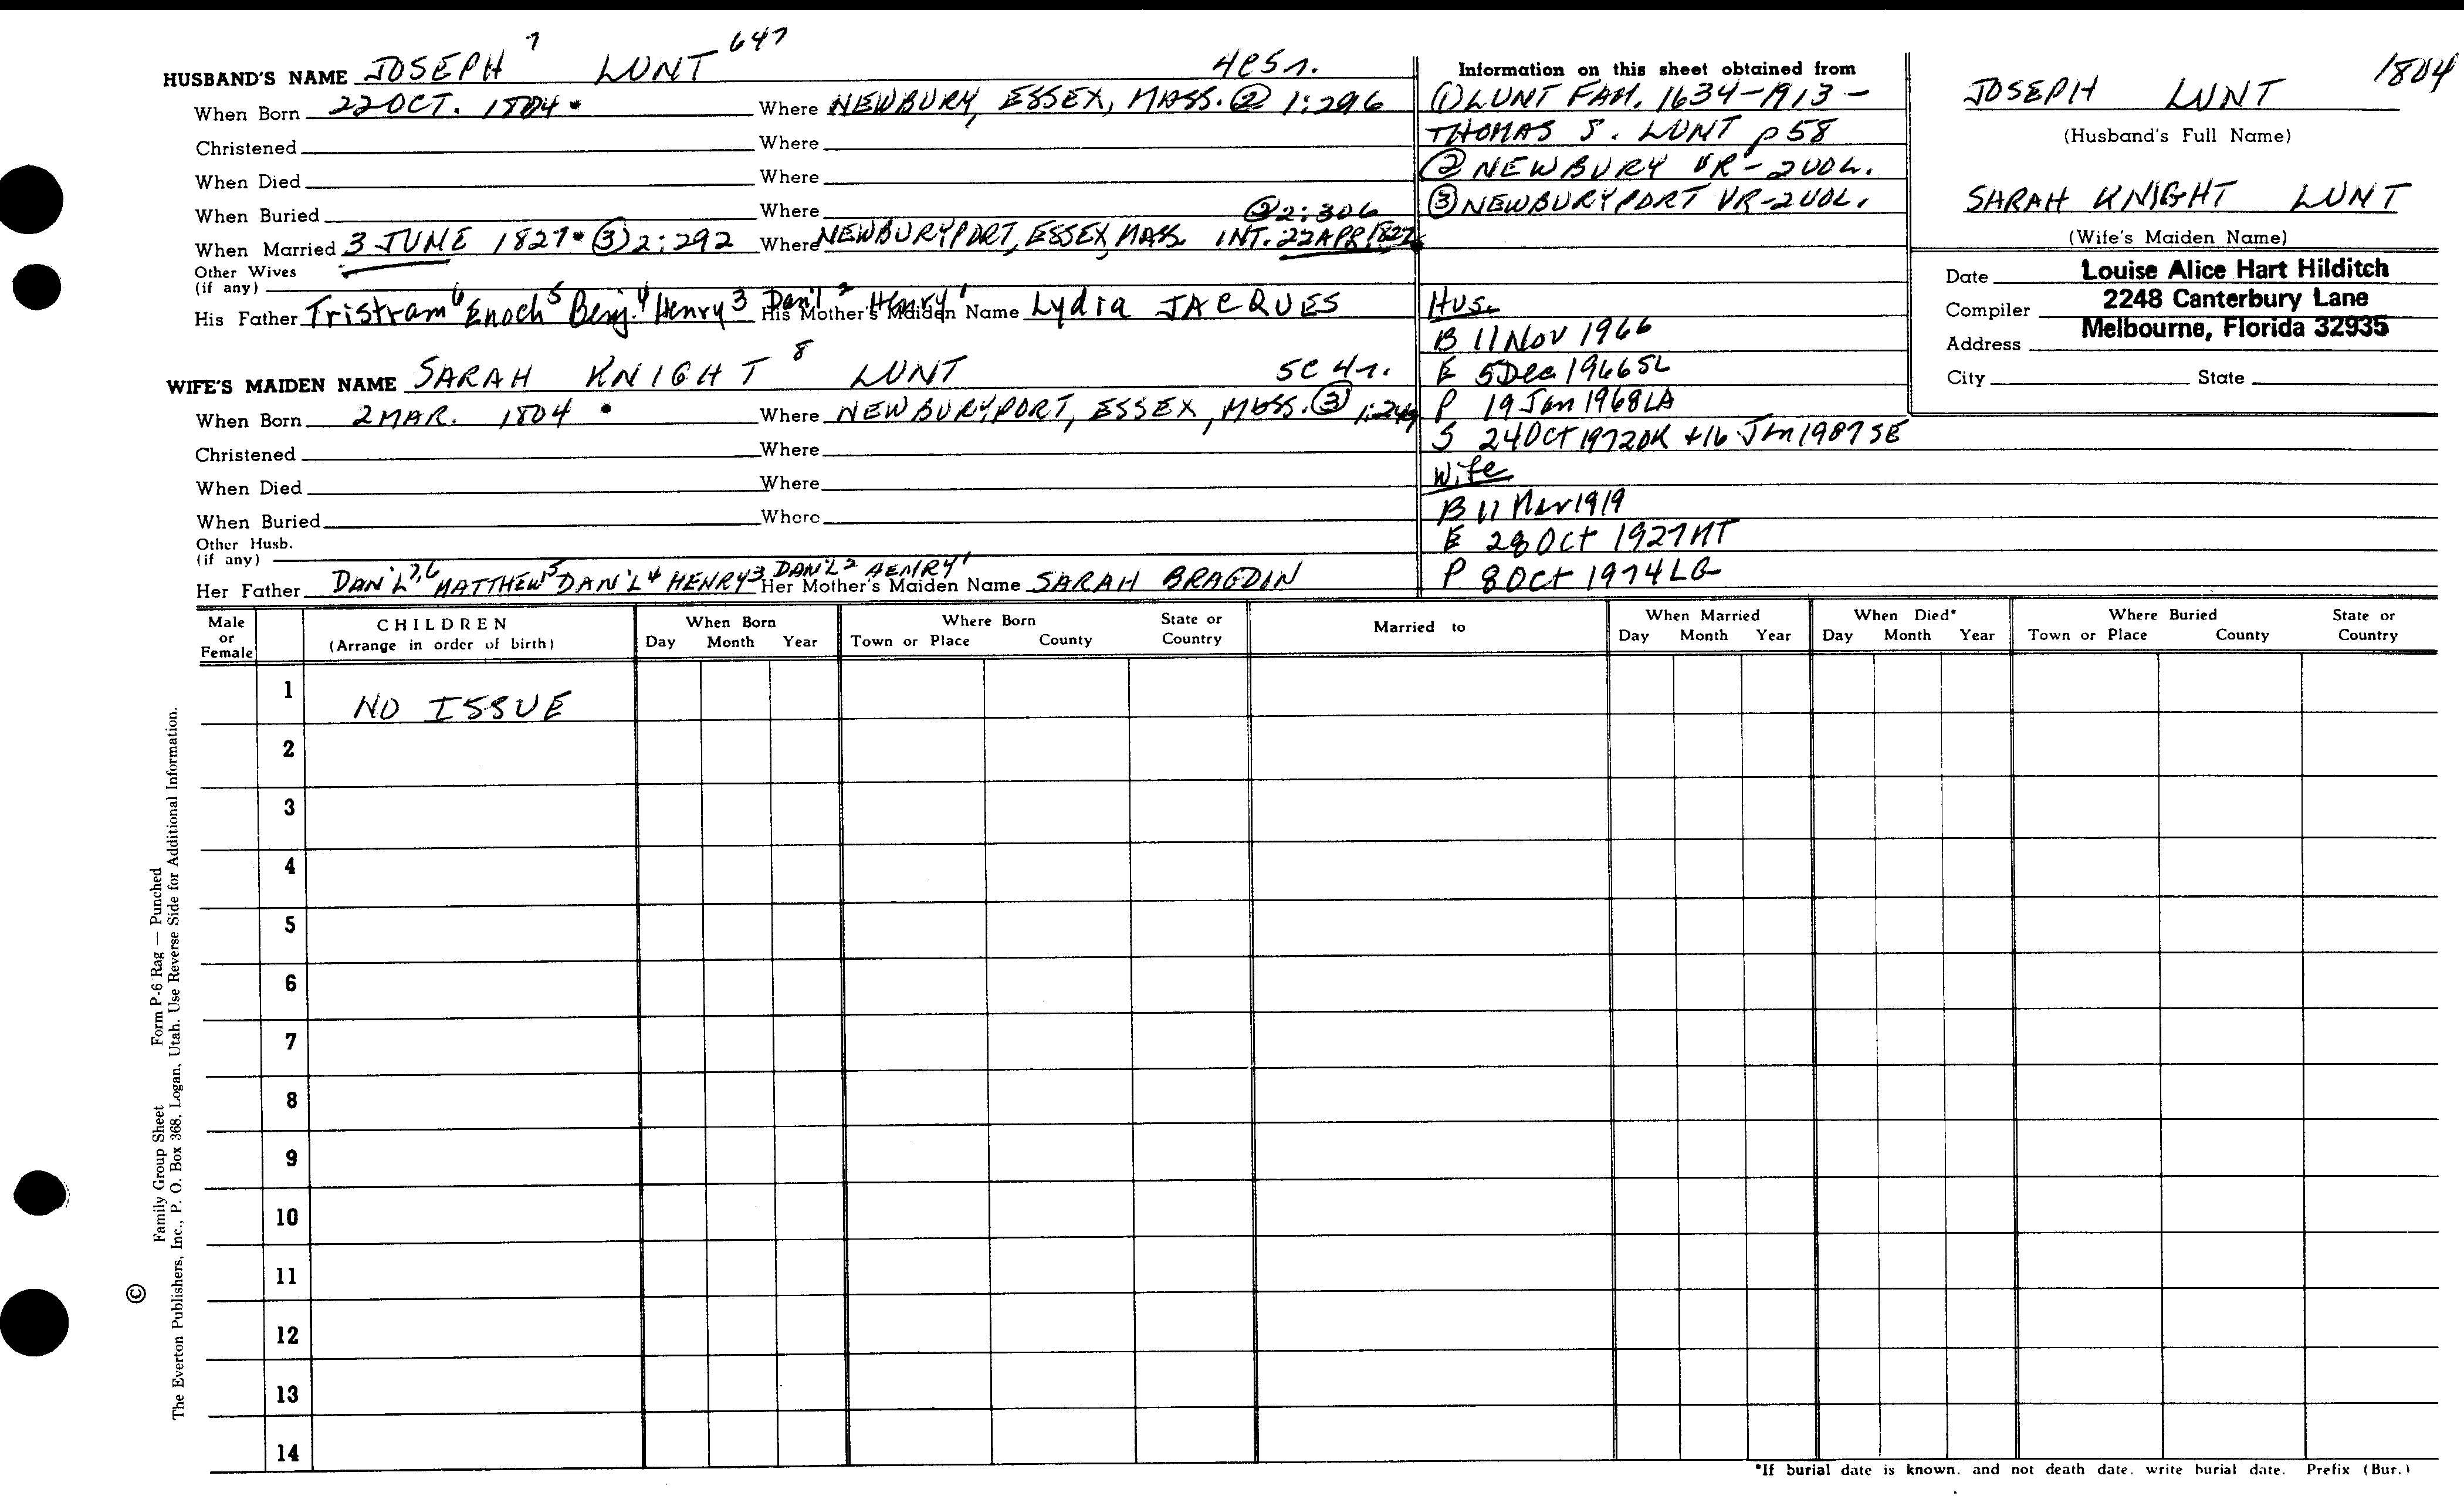 HUSBAND'S NAME JOSEPH 7 LUNT 647
When Born 22 OCT. 1804 • Where NEWBURY, ESSEX, MASS. ② 1:296
Christened Where
When Died Where
When Buried Where ② 2:306
When Married 3 JUNE 1827 • ③ 2:292 Where NEWBURYPORT, ESSEX, MASS. INT. 22 APR 1827
Other Wives
(if any)
His Father Tristram 6 Enoch 5 Benj. 4 Henry 3 Dan'l 2 Henry 1 His Mother's Maiden Name Lydia JACQUES
WIFE'S MAIDEN NAME SARAH KNIGHT 8 LUNT
When Born 2 MAR. 1804 • Where NEWBURYPORT, ESSEX, MASS. ③ 1:249
Christened Where
When Died Where
When Buried Where
Other Husb.
(if any)
Her Father DAN'L 7,6 MATTHEW 5 DAN'L 4 HENRY 3 DAN'L 2 HENRY 1 Her Mother's Maiden Name SARAH BRAGDIN
Information on this sheet obtained from
① LUNT FAM. 1634-1913 -
THOMAS S. LUNT p 58
② NEWBURY VR - 2 VOL.
③ NEWBURYPORT VR - 2 VOL.
Hus.
B 11 Nov 1966
E 5 Dec 1966 SL
P 19 Jan 1968 LA
S 24 Oct 1972 OK + 16 Jan 1987 SE
Wife
B 11 Mar 1919
E 28 Oct 1927 MT
P 8 Oct 1974 LG
1804
JOSEPH LUNT
(Husband's Full Name)
SARAH KNIGHT LUNT
(Wife's Maiden Name)
Date Louise Alice Hart Hilditch
Compiler 2248 Canterbury Lane
Address Melbourne, Florida 32935
City State
Male or Female
CHILDREN
(Arrange in order of birth)
When Born
Day Month Year
Where Born
Town or Place County State or Country
Married to
When Married
Day Month Year
When Died*
Day Month Year
Where Buried
Town or Place County State or Country
1 NO ISSUE
2
3
4
5
6
7
8
9
10
11
12
13
14
*If burial date is known, and not death date, write burial date. Prefix (Bur.)
©
Family Group Sheet Form P-6 Rag — Punched
The Everton Publishers, Inc., P. O. Box 368, Logan, Utah. Use Reverse Side for Additional Information.